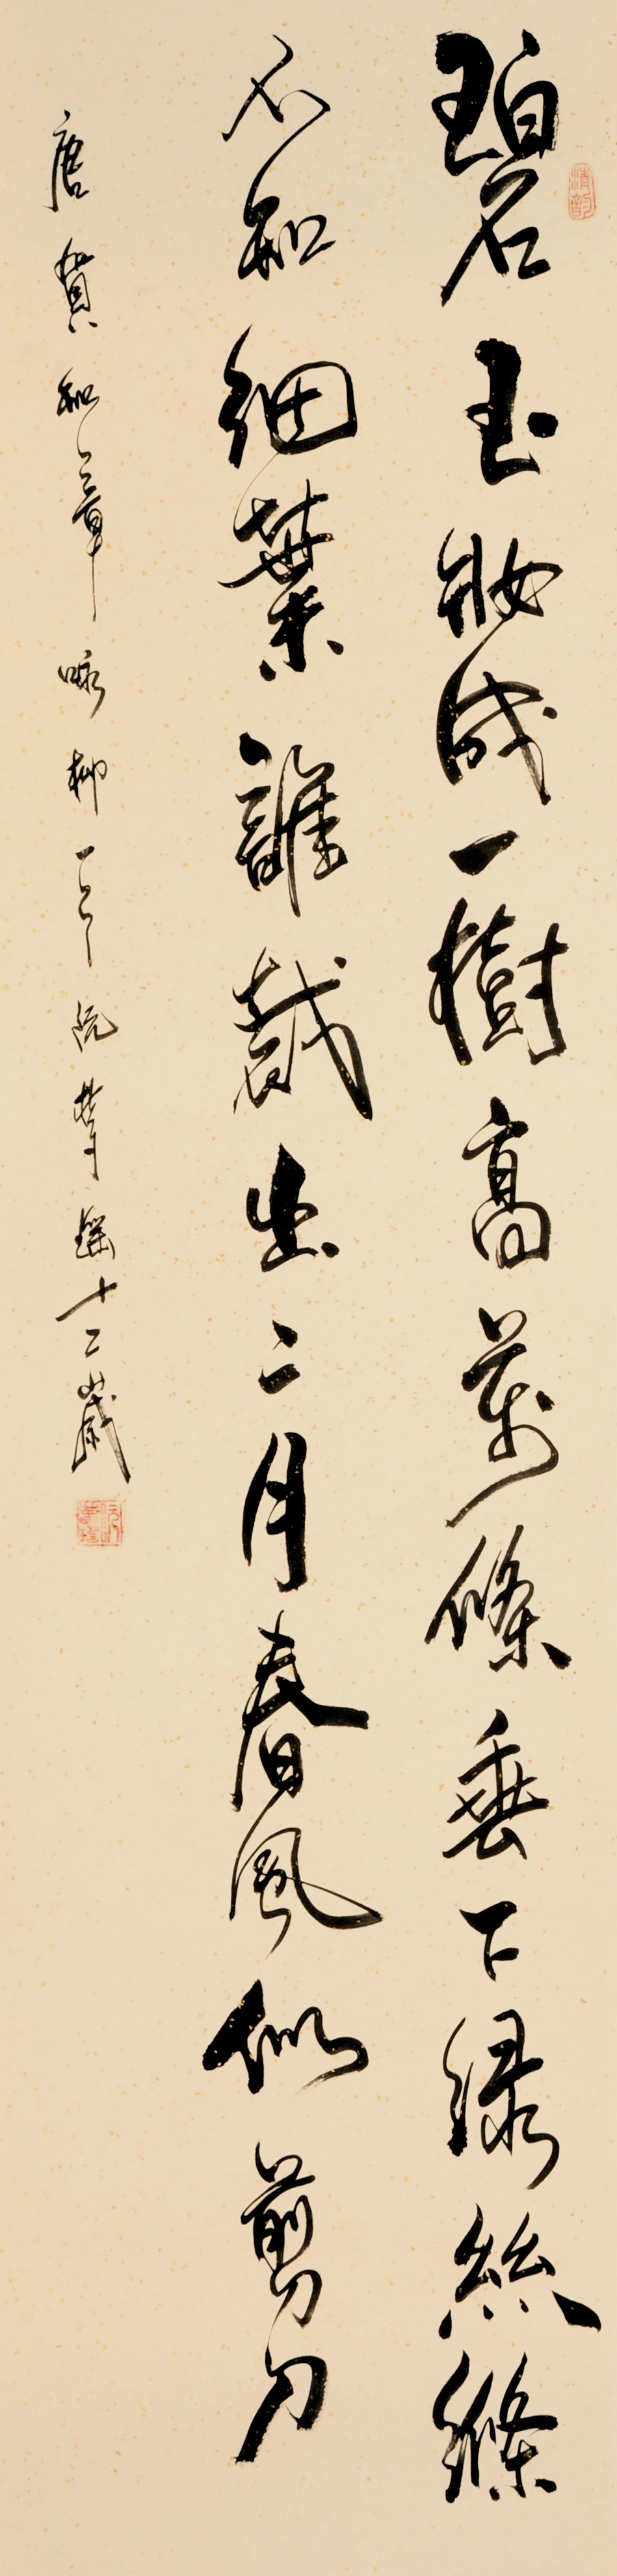 碧玉妝成一樹高萬條垂下綠絲絛
不知細葉誰裁出二月春風似剪刀
唐賀知章咏柳一首阮夢瑶十二歲
清韵